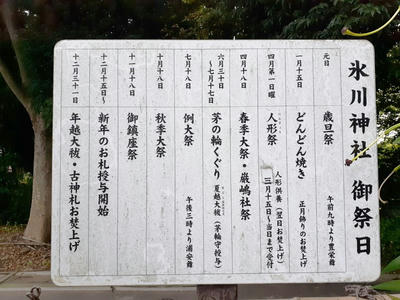 氷川神社 御祭日
元日 歳旦祭 午前九時より豊栄舞
一月十五日 どんどん焼き 正月飾りのお焚上げ
四月第一日曜 人形祭 人形供養(翌日お焚上げ)
三月十五日~当日まで受付
四月十八日 春季大祭・厳嶋社祭
六月三十日
~七月十七日 茅の輪くぐり 夏越大祓(茅輪守授与)
七月十八日 例大祭 午後三時より浦安舞
十月十八日 秋季大祭
十一月十八日 御鎮座祭
十二月十五日~ 新年のお札授与開始
十二月三十一日 年越大祓・古神札お焚上げ